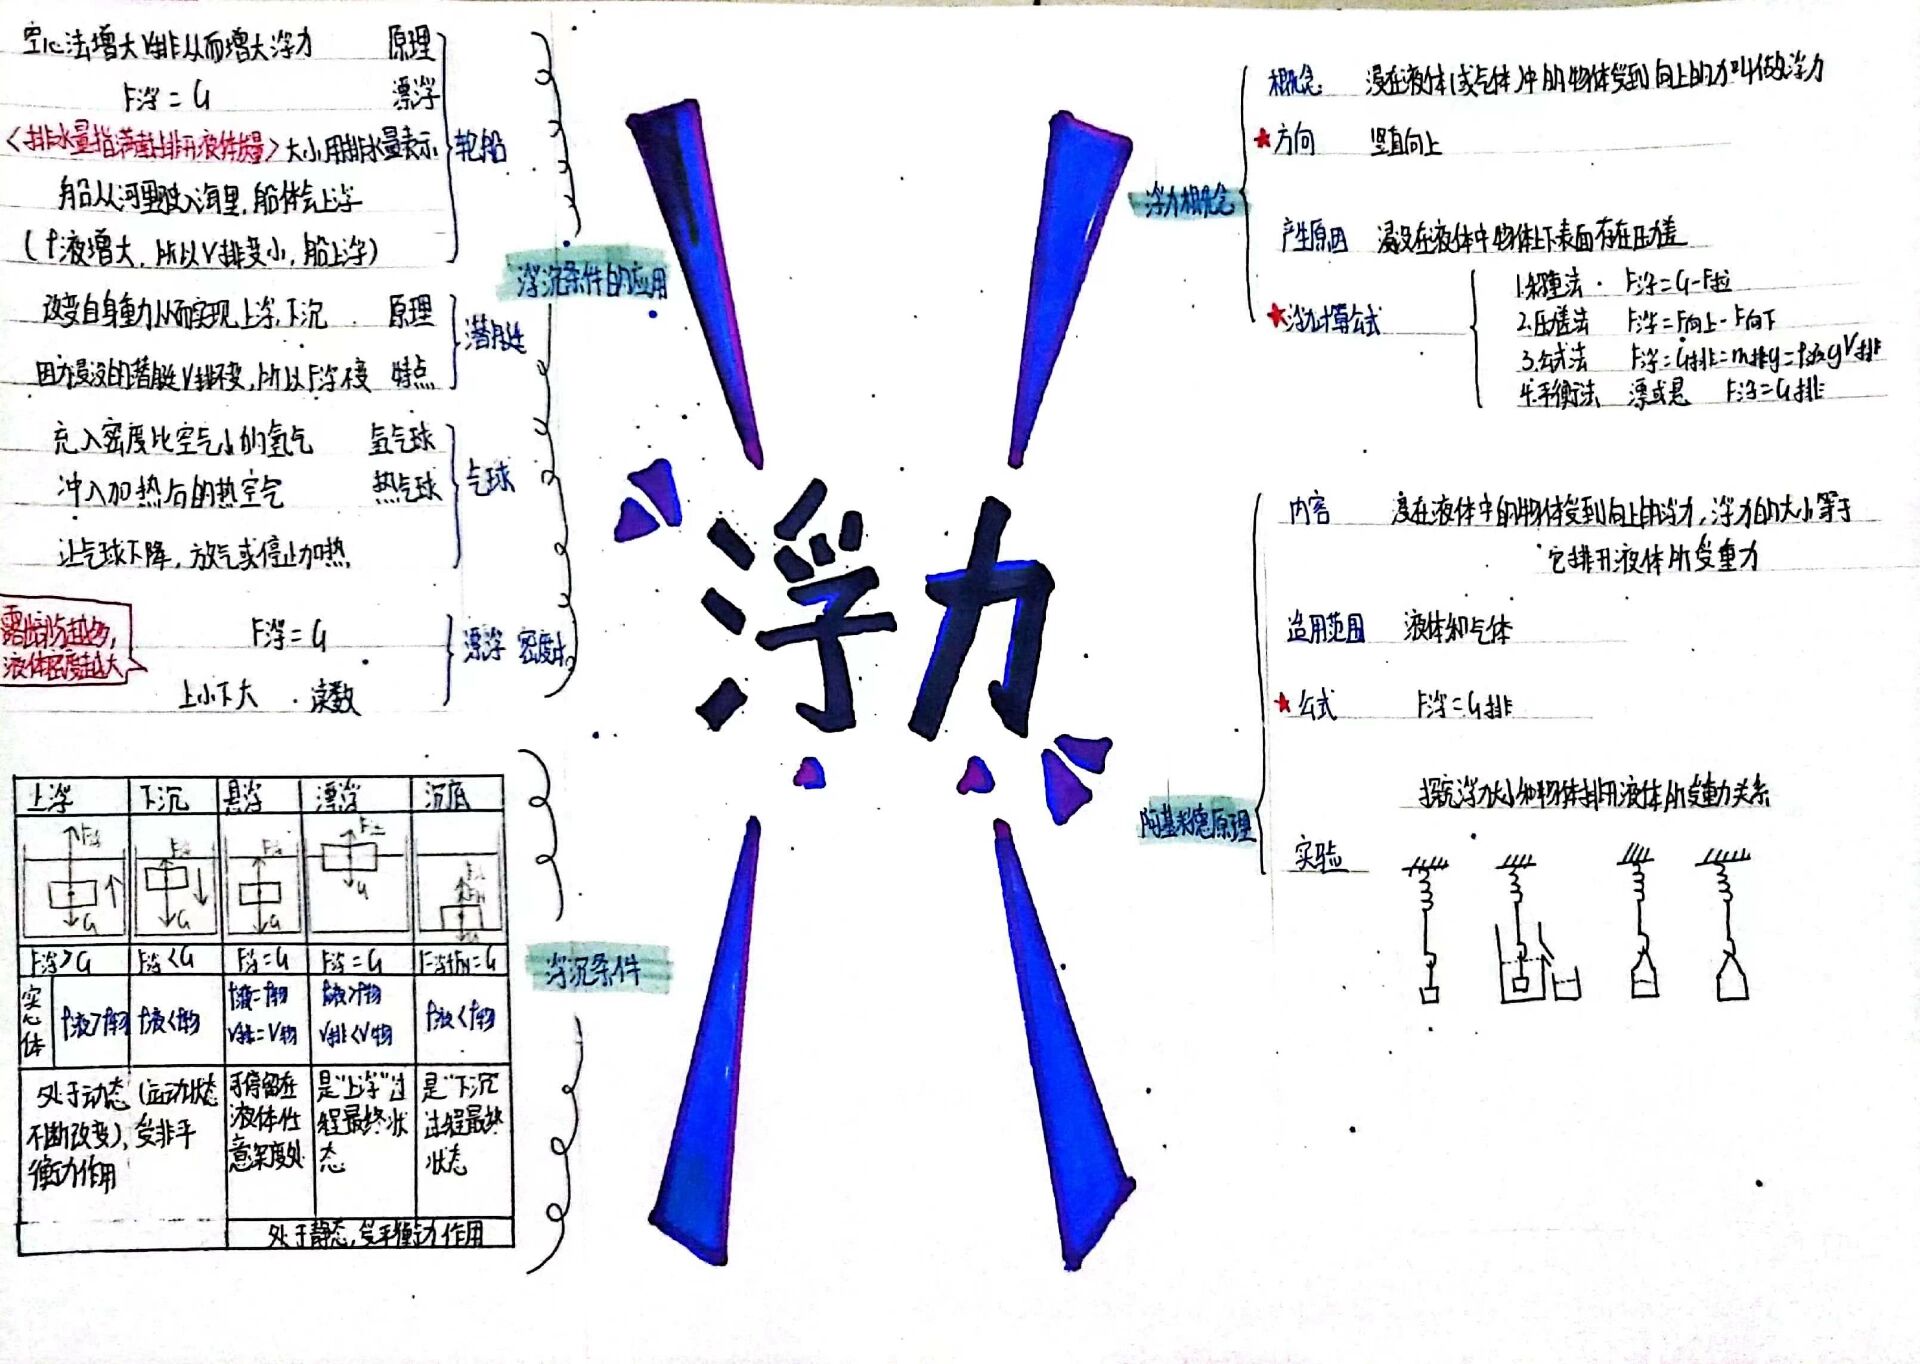 浮力
浮力概念
概念 浸在液体(或气体)冲的物体受到向上的力叫做浮力
★方向 竖直向上
产生原因 浸没在液体中物体上下表面存在压力差
★浮力计算公式
1.称重法· F浮=G-F拉
2.压差法 F浮=F向上-F向下
3.公式法 F浮=G排=m排g=ρ液gV排
4.平衡法 漂或悬 F浮=G排
阿基米德原理
内容 浸在液体中的物体受到向上的浮力,浮力的大小等于
它排开液体所受重力
适用范围 液体和气体
★公式 F浮=G排
探究浮力大小和物体排开液体所受重力关系
实验
浮沉条件的应用
轮船
空心法增大V排从而增大浮力 原理
F浮=G 漂浮
<排水量指满载时排开液体质量>大小用排水量表示
船从河里驶入海里,船体会上浮
(ρ液增大,所以V排变小,船上浮)
潜艇
改变自身重力从而实现上浮、下沉 原理
因为浸没的潜艇V排不变,所以F浮不变 特点
气球
充入密度比空气小的氢气 氢气球
冲入加热后的热空气 热气球
让气球下降,放气或停止加热
漂浮 密度计
F浮=G
上小下大·读数
露出部分越多,
液体密度越大
浮沉条件
上浮 下沉 悬浮 漂浮 沉底
F浮 F浮 F浮 F浮
G G G G
F浮>G F浮<G F浮=G F浮=G F浮+FN=G
实心体 ρ液>ρ物 ρ液<ρ物 ρ液=ρ物 ρ液>ρ物 ρ液<ρ物
V排=V物 V排<V物
处于动态(运动状态
不断改变),受非平
衡力作用
可停留在
液体任
意深度处
是"上浮"过
程最终状
态
是"下沉"
过程最终
状态
处于静态,受平衡力作用